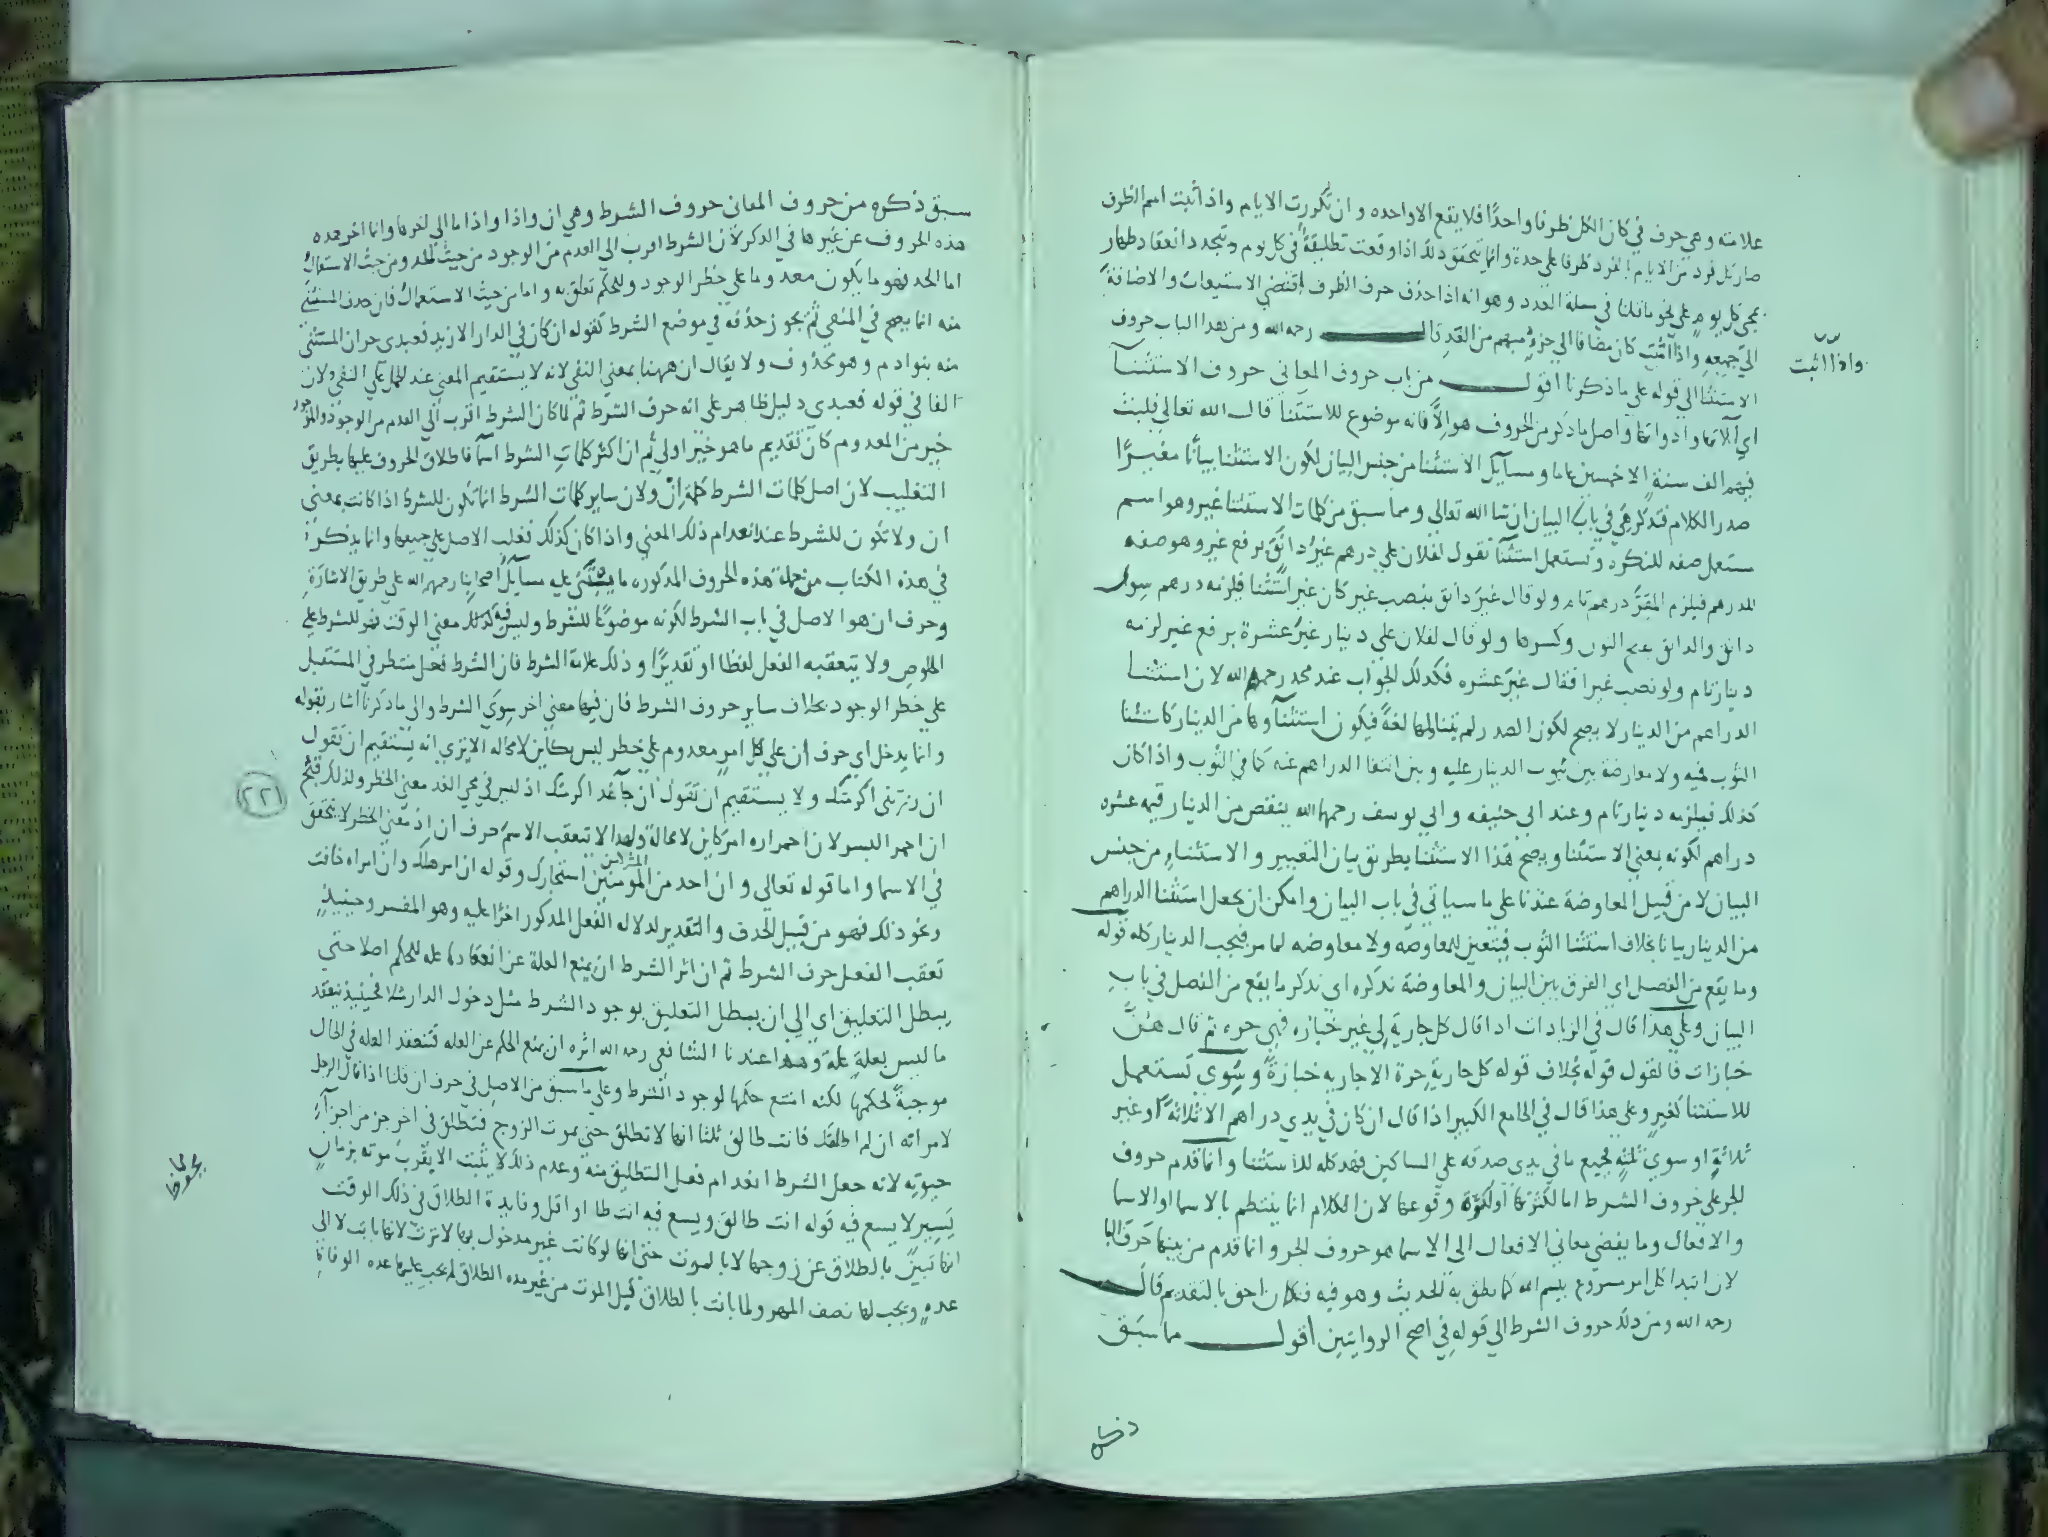 علامته وهي حرف في كان الكل ظرفا واحدًا فلا يقع الا واحده وان تكررت الايام واذا ثبت اسم الظرف
صار كل فرد من الايام ظرفا على حدة وانما يتحقق ذلك اذا وقعت تطليقة في كل يوم ويتجدد انعقاد ظهار
كل يوم على نحو ما قلنا في مسلة الغد وهو انه اذا حذف حرف الظرف اقتضى الاستيعاب والاضافة
الى جميعه واذا اثبت كان مضافا الى جزء مبهم من الغد قال رحمه الله ومن هذا الباب حروف
واذا اثبت
الاستثنا الى قوله على ما ذكرنا اقول من باب حروف المعاني حروف الاستثنا
اي آلاتها وادواتها واصل ما ذكر من الحروف هو الا فانه موضوع للاستثنا قال الله تعالى فلبث
فيهم الف سنة الا خمسين عاما ومسايل الاستثنا من جنس البيان لكون الاستثنا بيانا مغيرًا
صدر الكلام فنذكرها في باب البيان ان شا الله تعالى ومما سبق من كلمات الاستثنا غير وهو اسم
يستعمل صفه للنكرة وتستعمل استثنا تقول لفلان علي درهم غير دانق برفع غير وهو صفه
للدرهم فيلزم المقر درهم تام ولو قال غير دانق بنصب غير كان غير استثنا فلزمه درهم سوى
دانق والدانق بفتح النون وكسرها ولو قال لفلان علي دينار غير عشرة برفع غير لزمه
دينار تام ولو نصب غيرا فقال غير عشره فكذلك الجواب عند محمد رحمه الله لان استثنا
الدراهم من الدينار لا يصح لكون الصدر لم يتناولها لغة فيكون استثناوها من الدينار كاستثنا
الثوب فيه ولا معارضة بين ثبوت الدينار عليه وبين انتفا الدراهم عنه كما في الثوب واذا كان
كذلك فيلزمه دينار تام وعند ابي حنيفه وابي يوسف رحمهما الله ينقص من الدينار قيمه عشره
دراهم لكونه يعني الاستثنا ويصح هذا الاستثنا بطريق بيان التغيير والاستثناء من جنس
البيان لا من قبيل المعاوضة عندنا على ما سياتي في باب البيان وامكن ان يجعل استثنا الدراهم
من الدينار بيانا بخلاف استثنا الثوب فيتعين للمعاوضه ولا معاوضه لما مر فيجب الدينار كله قوله
وما يقع من الفصل اي الفرق بين البيان والمعاوضة نذكره اي نذكر ما يقع من الفصل في باب
البيان وعلى هذا قال في الزيادات اذا قال كل جارية لي غير خبازه فهي حره ثم قال هن
خبازات فالقول قوله بخلاف قوله كل جارية حرة الا جاريه خبازة وسوى تستعمل
للاستثنا كغير وعلى هذا قال في الجامع الكبير اذا قال ان كان في يدي دراهم الا ثلاثة او غير
ثلاثة او سوى ثلثه فجميع ما في يدي صدقه على المساكين فهذا كله للاستثنا وانما قدم حروف
الجر على حروف الشرط اما لكثرتها او لكثرة وقوعها لان الكلام انما ينتظم بالاسما او الاسما
والافعال وما يفضي معاني الافعال الى الاسما هو حروف الجر وانما قدم من بينها حرف البا
لان ابتدا كل امر مشروع ببسم الله كما نطق به الحديث وهو فيه فكان احق بالتقديم قال
رحمه الله ومن ذلك حروف الشرط الى قوله في اصح الروايتين اقول مما سبق
ذكره
سبق ذكره من حروف المعاني حروف الشرط وهي ان واذا واذا ما الى اخرها وانما اخر هذه
هذه الحروف عن غيرها في الذكر لان الشرط اقرب الى العدم من الوجود من حيث الحد ومن حيث الاستعمال
اما الحد فهو ما يكون معدوما على خطر الوجود وللحكم تعلق به واما من حيث الاستعمال فان حذف المستثنى
منه انما يصح في المنفي ثم يجوز حذفه في موضع الشرط كقوله ان كان في الدار الا زيد فعبدي حر ان المستثنى
منه بنو ادم وهو محذوف ولا يقال ان ههنا بمعنى النفي لانه لا يستقيم المعنى عند الحمل على النفي ولان
الفا في قوله فعبدي دليل ظاهر على انه حرف الشرط ثم لما كان الشرط اقرب الى العدم من الوجود والموجود
خير من المعدوم كان تقديم ما هو خير اولى ثم ان اكثر كلمات الشرط اسما فاطلاق الحروف عليها بطريق
التغليب لان اصل كلمات الشرط كلمة ان ولان ساير كلمات الشرط انما تكون للشرط اذا كانت بمعنى
ان ولا تكون للشرط عند انعدام ذلك المعنى واذا كان كذلك فغلب الاصل على جميعها وانما يذكر
في هذه الكتاب من جملة هذه الحروف المذكوره ما يبتني عليه مسايل اصحابنا رحمهم الله على طريق الاشارة
وحرف ان هو الاصل في باب الشرط لكونه موضوعا للشرط وليس فيه كذلك معنى الوقت فهو للشرط على
الخلوص ولا يتعقبه الفعل لفظا او تقديرًا وذلك علامة الشرط فان الشرط فعل منتظر في المستقبل
على خطر الوجود بخلاف ساير حروف الشرط فان فيها معنى اخر سوى الشرط والى ما ذكرنا اشار بقوله
وانما يدخل اي حرف ان على كل امر معدوم على خطر ليس بكاين لا محاله الا ترى انه يستقيم ان تقول
ان زرتني اكرمتك ولا يستقيم ان تقول ان جا غد اكرمتك اذ ليس في مجي الغد معنى الخطر ولذلك قبح
٢٢١
ان احمر البسر لان احمراره امر كاين لا محالة ولهذا لا تتعقب الاسم حرف ان اذ معنى الخطر لا يتحقق
في الاسما واما قوله تعالى وان احد من المشركين استجارك وقوله ان امرو هلك وان امراه خافت
ونحو ذلك فهو من قبيل الحذف والتقدير لدلاله الفعل المذكور اخرًا عليه وهو المفسر وحينيذ
تعقب الفعل حرف الشرط ثم ان اثر الشرط ان يمنع العلة عن انعقادها عله للحكم اصلا حتى
يبطل التعليق اي الى ان يبطل التعليق بوجود الشرط مثل دخول الدار مثلا فحينيذ ينعقد
ما ليس بعلة علة وهذا عندنا الشافعي رحمه الله اثره ان يمنع الحكم عن العله فتنعقد العله في الحال
موجبة لحكمها لكنه امتنع حكمها لوجود الشرط وعلى ما سبق من الاصل في حرف ان قلنا اذا قال الرجل
لامراته ان لم اطلقك فانت طالق ثلثا انها لا تطلق حتى يموت الزوج فتطلق في اخر جز من اجزآء
حيوته لانه جعل الشرط انعدام فعل التطليق منه وعدم ذلك لا يثبت الا بقرب موته بزمان
يسير لا يسع فيه قوله انت طالق ويسع فيه انت طا او اقل وفايدة الطلاق في ذلك الوقت
انها تبين بالطلاق عن زوجها لا بالموت حتى انها لو كانت غير مدخول بها لا ترث لانها بانت لا الى
عدةٍ ويجب لها نصف المهر ولما بانت بالطلاق قبيل الموت من غير مده الطلاق لم يجب عليها عده الوفاة